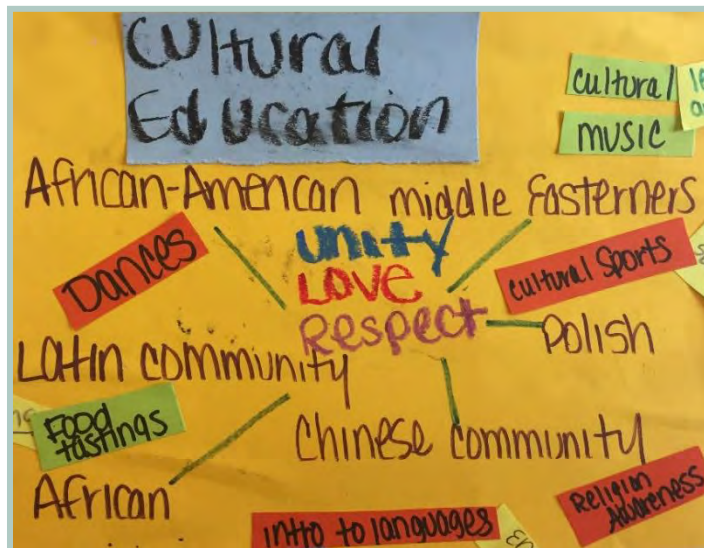 Cultural
Education
cultural
music
African-American
middle Easterners
Dances
unity
Love
Respect
cultural Sports
Polish
Latin community
Food
tastings
Chinese community
African
Religion
Awareness
intro to languages